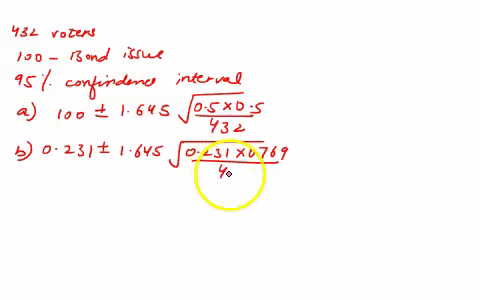 432 voters
100 - Bond issue
95% confindence interval
a) 100 ± 1.645 √(0.5×0.5/432)
b) 0.231 ± 1.645 √(0.231×0.769/4